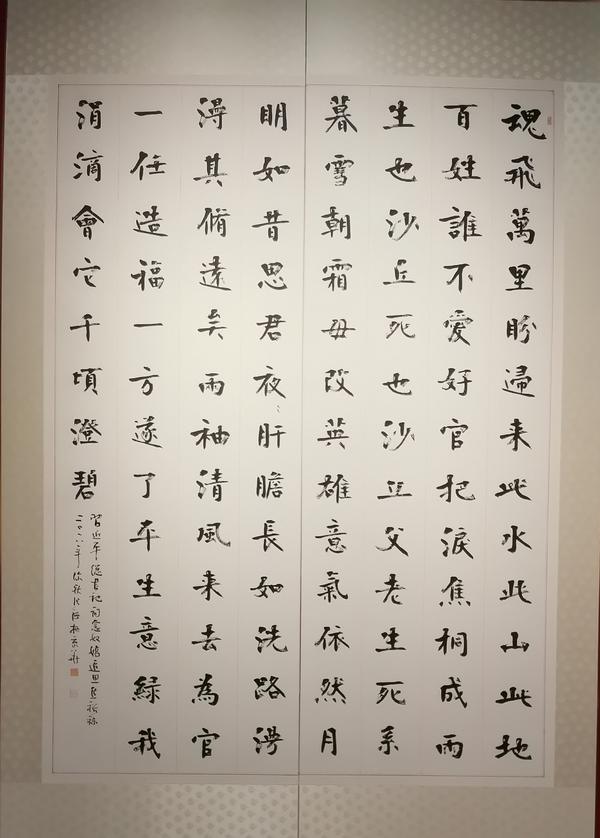 魂飛萬里盼歸来此水此山此地
百姓誰不愛好官把淚焦桐成雨
生也沙丘死也沙丘父老生死系
暮雪朝霜毋改英雄意氣依然月
明如昔思君夜〻肝膽長如洗路漫
漫其脩遠矣兩袖清風来去為官
一任造福一方遂了平生意緑我
涓滴會它千頃澄碧
習近平總書記詞念奴嬌追思焦裕禄